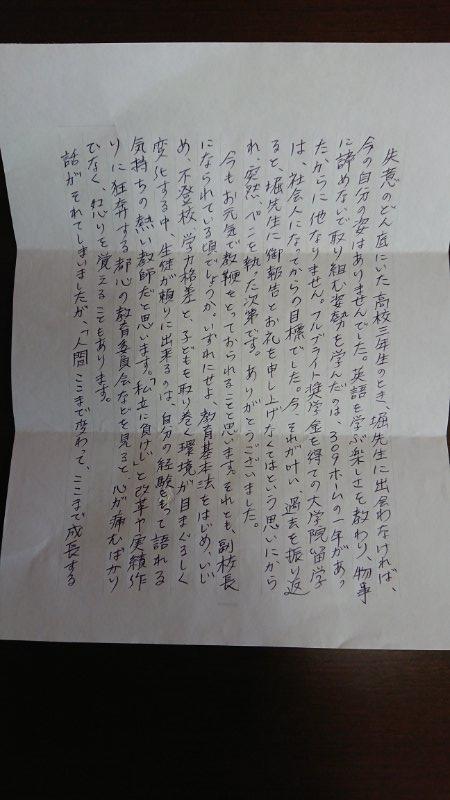 失意のどん底にいた高校三年生のとき、堀先生に出会わなければ、
今の自分の姿はありませんでした。英語を学ぶ楽しさを教わり、物事
に諦めないで取り組む姿勢を学んだのは、309ホームの一年があっ
たからに他なりません。フルブライト奨学金を得ての大学院留学
は、社会人になってからの目標でした。今、それが叶い、過去を振り返
ると、堀先生に御報告とお礼を申し上げなくてはという思いにから
れ、突然、ペンを執った次第です。ありがとうございました。
今もお元気で教鞭をとっておられることと思います。それとも、副校長
になられている頃でしょうか。いずれにせよ、教育基本法をはじめ、いじ
め、不登校、学力格差と、子どもを取り巻く環境が目まぐるしく
変化する中、生徒が頼りに出来るのは、自分の経験をもって語れる
気持ちの熱い教師だと思います。「私立に負けじ」と改革や実績作
りに狂奔する都心の教育委員会などを見ると、心が痛むばかり
でなく、怒りを覚えることもあります。
話がそれてしまいましたが、「人間ここまで変わって、ここまで成長する